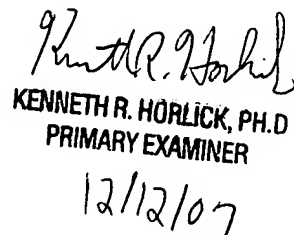 Kenneth R. Horlick
KENNETH R. HORLICK, PH.D
PRIMARY EXAMINER
12/12/07